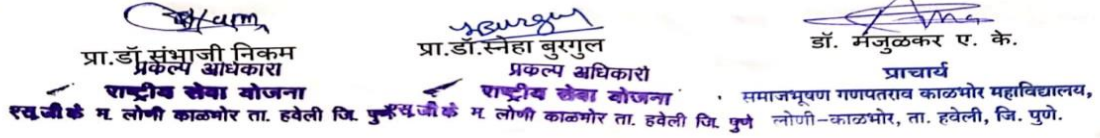 प्रा.डॉ.संभाजी निकम
प्रकल्प अधिकारी
राष्ट्रीय सेवा योजना
एस.जी.के. म. लोणी काळभोर ता. हवेली जि. पुणे
प्रा.डॉ.स्नेहा बुरगुल
प्रकल्प अधिकारी
राष्ट्रीय सेवा योजना
एस.जी.के. म. लोणी काळभोर ता. हवेली जि. पुणे
डॉ. मंजुळकर ए. के.
प्राचार्य
समाजभूषण गणपतराव काळभोर महाविद्यालय,
लोणी-काळभोर, ता. हवेली, जि. पुणे.